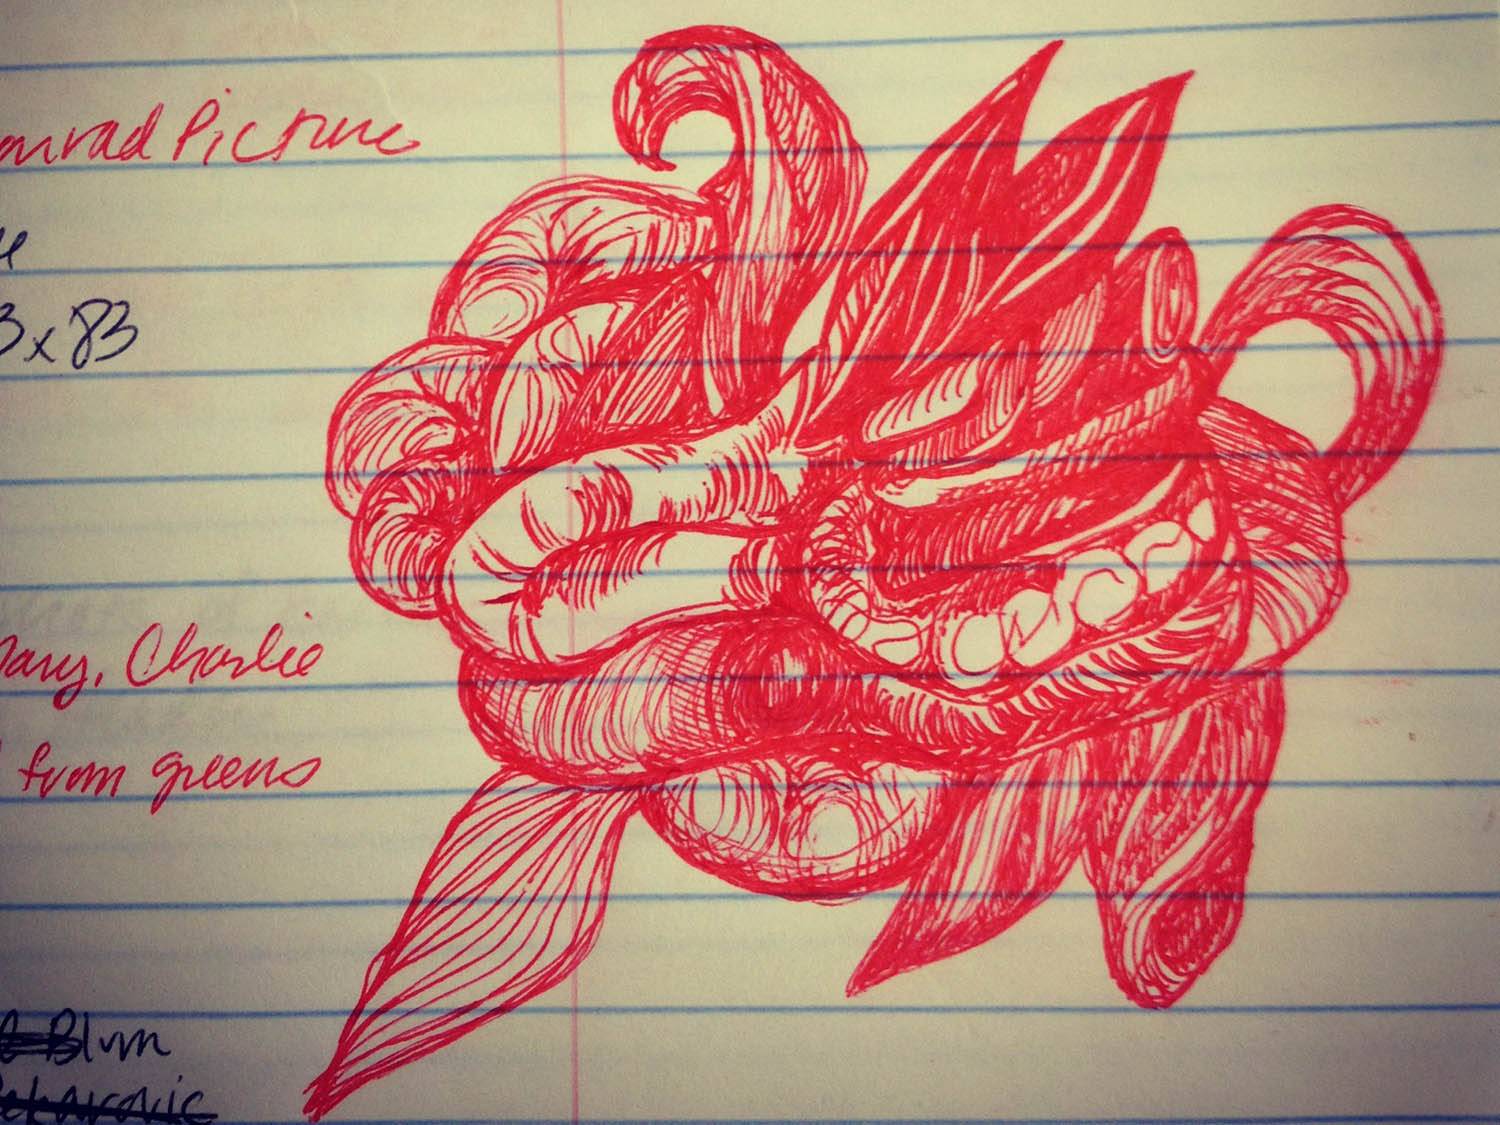 onrad Picture
3 x 83
Mary, Charlie
from greens
Blum